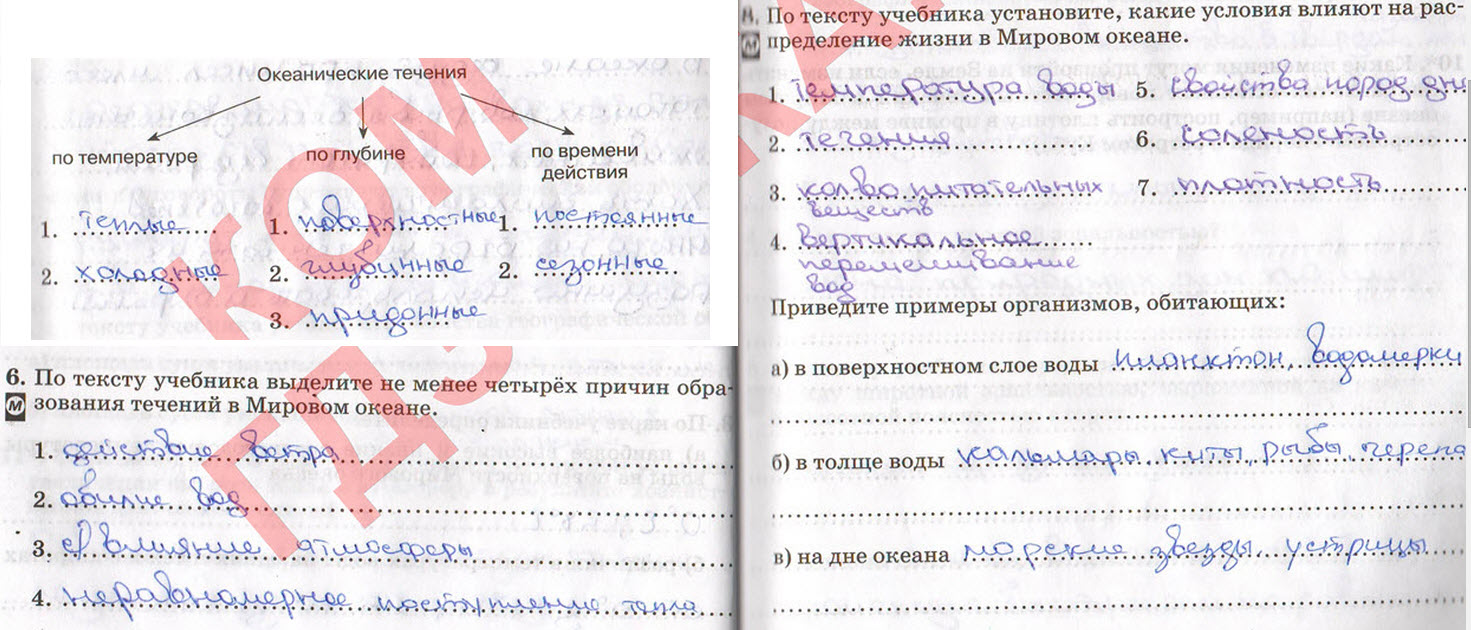 Океанические течения
по температуре
по глубине
по времени
действия
1. теплые
2. холодные
1. поверхностные
2. глубинные
3. придонные
1. постоянные
2. сезонные
6. По тексту учебника выделите не менее четырёх причин обра-
М зования течений в Мировом океане.
1. действие ветра
2. обилие вод
3. влияние атмосферы
4 неравномерное поступление тепла
8. По тексту учебника установите, какие условия влияют на рас-
М пределение жизни в Мировом океане.
1. температура воды 5. свойства пород дна
2. течения 6. соленость
3. кол-во питательных 7. плотность
веществ
4. вертикальное
перемешивание
вод
Приведите примеры организмов, обитающих:
а) в поверхностном слое воды планктон, водомерки
б) в толще воды кальмары киты рыбы черепа
в) на дне океана морские звезды устрицы
КОМ
ГДЗ